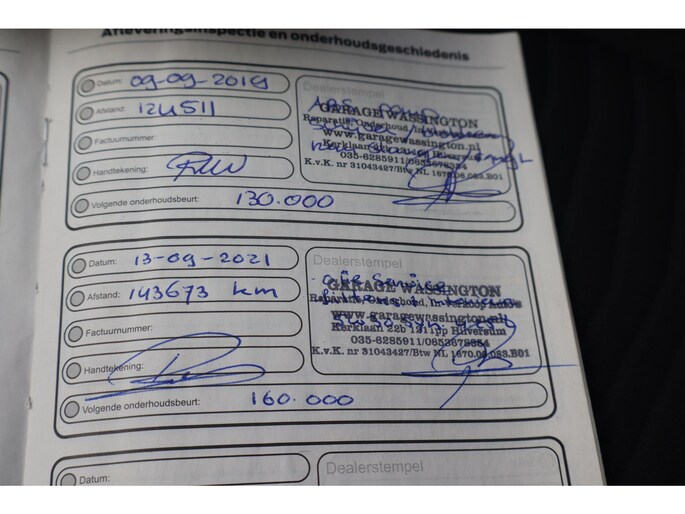 Afleveringsinspectie en onderhoudsgeschiedenis
Datum: 09-09-2019
Afstand: 124511
Factuurnummer:
Handtekening:
Volgende onderhoudsbeurt: 130.000
Dealerstempel
GARAGE WASSINGTON
Reparatie, Onderhoud,
www.garagewassington.nl
Kerklaan Hilversum
035-6285911/0853678354
K.v.K. nr 31043427/Btw NL 1670.08.083.B01
Datum: 13-09-2021
Afstand: 143673 km
Factuurnummer:
Handtekening:
Volgende onderhoudsbeurt: 160.000
Dealerstempel
olie service
GARAGE WASSINGTON
Reparatie, Onderhoud, In/verkoop Auto's
www.garagewassington.nl
Kerklaan 22b 1211pp Hilversum
035-6285911/0853678354
K.v.K. nr 31043427/Btw NL 1670.08.083.B01
Datum:
Dealerstempel